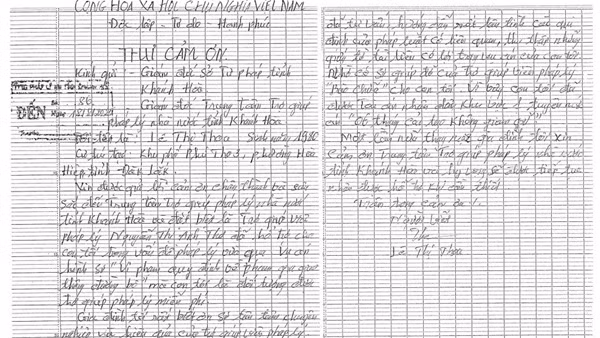 CỘNG HÒA XÃ HỘI CHỦ NGHĨA VIỆT NAM
Độc lập - Tự do - Hạnh phúc
THƯ CẢM ƠN
Kính gửi: - Giám đốc Sở Tư pháp tỉnh
Khánh Hòa
- Giám đốc Trung tâm Trợ giúp
pháp lý nhà nước tỉnh Khánh Hòa
ĐẾN
86
Tên tôi là: Lê Thị Thoa Sinh năm 1982
Cư trú tại: Khu phố Phú Thọ 3, phường Hòa
Hiệp, tỉnh Đắk Lắk.
gửi lời cảm ơn chân thành và sâu
sắc đến Trung tâm Trợ giúp pháp lý nhà nước
tỉnh Khánh Hòa và đặc biệt là Trợ giúp viên
pháp lý Nguyễn Thị Anh đã hỗ trợ cho
con tôi trong vấn đề pháp lý vừa qua. Vụ án
hình sự "Vi phạm quy định về tham gia giao
thông đường bộ" mà con tôi là đối tượng được
trợ giúp pháp lý miễn phí
Gia đình tôi rất biết ơn sự tận tâm chuyên
nghiệp và hiệu quả của trợ giúp viên pháp lý.
đã tư vấn, hướng dẫn rất tận tình các quy
định của pháp luật có liên quan, thu thập những
giấy tờ tài liệu có lợi cho con tôi
Nhờ có sự giúp đỡ của trợ giúp viên pháp lý
cho con tôi. Vì vậy con tôi đã
được Tòa án nhân dân Khu vực 2 tuyên mức
án "Cải tạo không giam giữ"
Một lần nữa thay mặt gia đình tôi xin
cảm ơn Trung tâm Trợ giúp pháp lý nhà nước
tỉnh Khánh Hòa và hy vọng sẽ được tiếp tục
nhận được hỗ trợ khi cần thiết
Trân trọng cảm ơn!
Người viết
Lê Thị Thoa